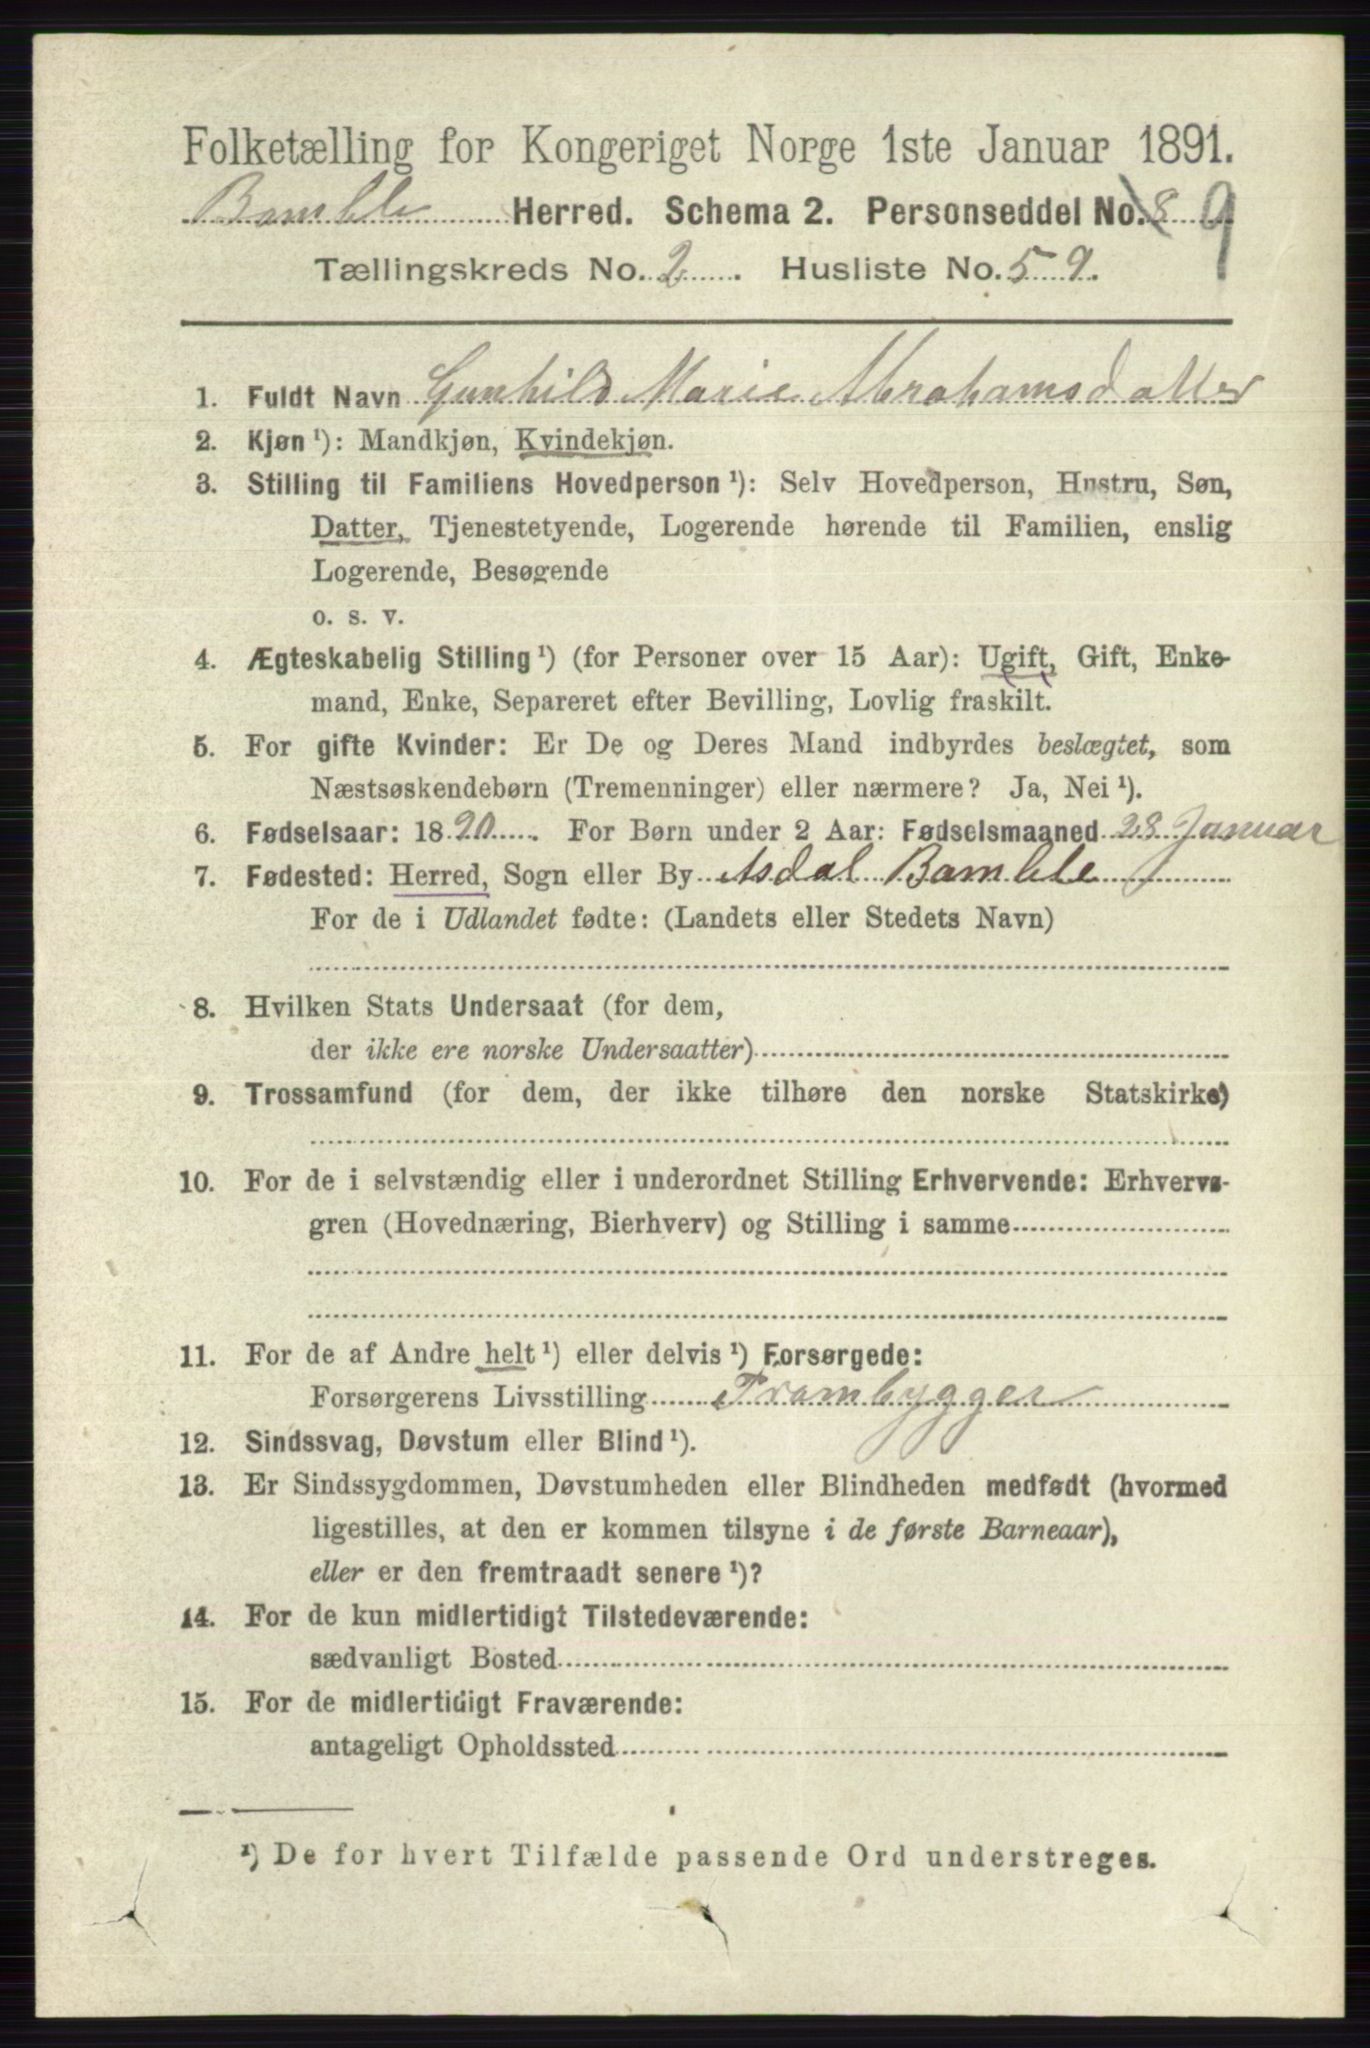 Folketælling for Kongeriget Norge 1ste Januar 1891.
Bamble Herred. Schema 2. Personseddel No. 8 9
Tællingskreds No. 2. Husliste No. 59.
1. Fuldt Navn Gunhild Marie Abrahamsdatter
2. Kjøn ¹): Mandkjøn, Kvindekjøn.
3. Stilling til Familiens Hovedperson ¹): Selv Hovedperson, Hustru, Søn,
Datter, Tjenestetyende, Logerende hørende til Familien, enslig
Logerende, Besøgende
o. s. v.
4. Ægteskabelig Stilling ¹) (for Personer over 15 Aar): Ugift, Gift, Enke-
mand, Enke, Separeret efter Bevilling, Lovlig fraskilt.
5. For gifte Kvinder: Er De og Deres Mand indbyrdes beslægtet, som
Næstsøskendebørn (Tremenninger) eller nærmere? Ja, Nei ¹).
6. Fødselsaar: 1890. For Børn under 2 Aar: Fødselsmaaned 28 Januar
7. Fødested: Herred, Sogn eller By Asdal Bamble
For de i Udlandet fødte: (Landets eller Stedets Navn)
8. Hvilken Stats Undersaat (for dem,
der ikke ere norske Undersaatter)
9. Trossamfund (for dem, der ikke tilhøre den norske Statskirke)
10. For de i selvstændig eller i underordnet Stilling Erhvervende: Erhvervs-
gren (Hovednæring, Bierhverv) og Stilling i samme
11. For de af Andre helt ¹) eller delvis ¹) Forsørgede:
Forsørgerens Livsstilling Frambygger
12. Sindssvag, Døvstum eller Blind ¹).
13. Er Sindssygdommen, Døvstumheden eller Blindheden medfødt (hvormed
ligestilles, at den er kommen tilsyne i de første Barneaar),
eller er den fremtraadt senere ¹)?
14. For de kun midlertidigt Tilstedeværende:
sædvanligt Bosted
15. For de midlertidigt Fraværende:
antageligt Opholdssted
¹) De for hvert Tilfælde passende Ord understreges.